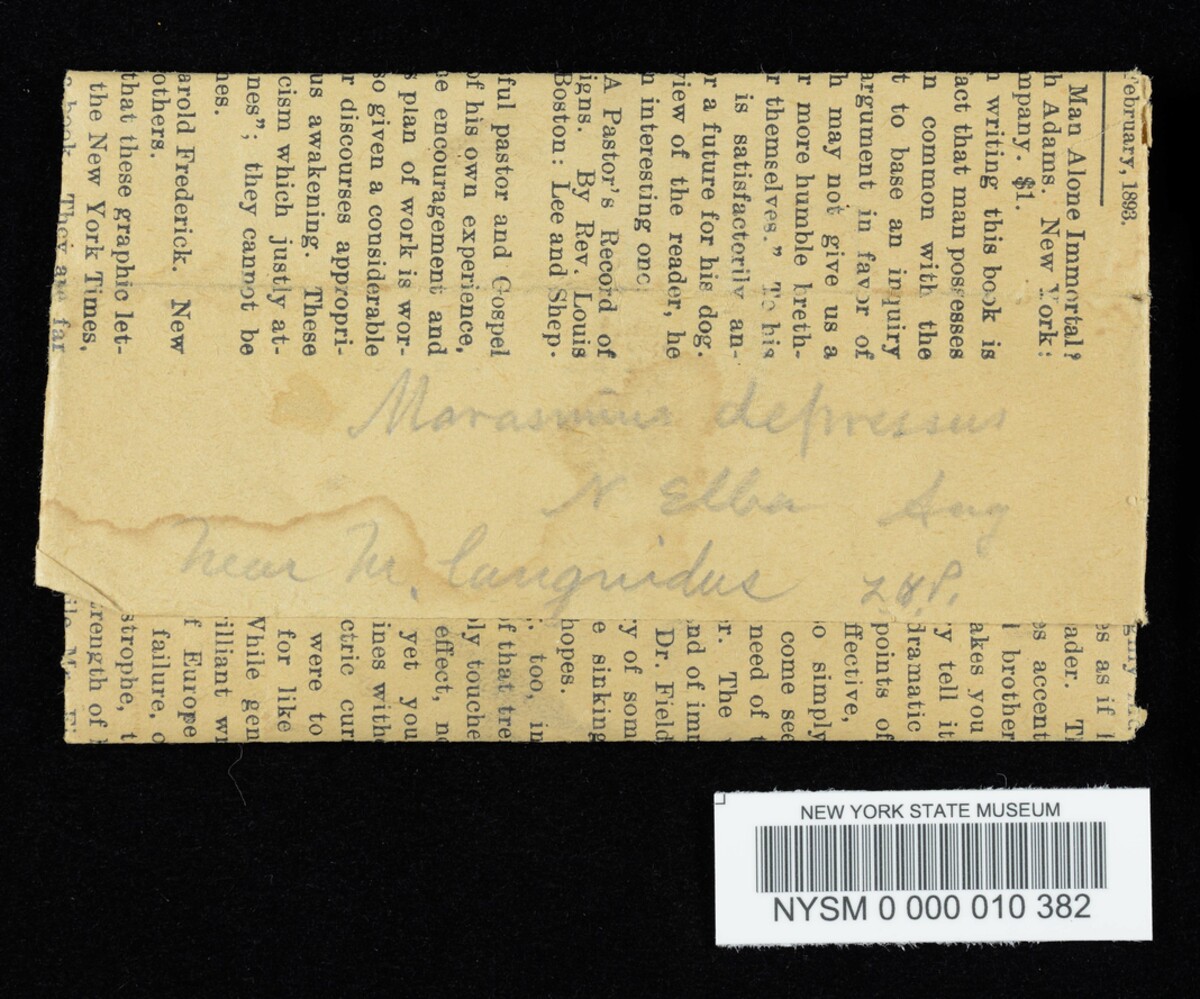 February, 1893.
Man Alone Immortal?
h Adams. New York:
mpany. $1.
n writing this book is
act that man possesses
n common with the
t to base an inquiry
argument in favor of
h may not give us a
r more humble breth-
r themselves." To his
is satisfactorily an-
r a future for his dog.
view of the reader, he
n interesting one
A Pastor's Record of
igns. By Rev. Louis
Boston: Lee and Shep.
ful pastor and Gospel
of his own experience,
e encouragement and
s plan of work is wor-
so given a considerable
r discourses appropri-
us awakening. These
cism which justly at-
nes"; they cannot be
nes.
arold Frederick. New
others.
that these graphic let-
the New York Times,
book They are far
Marasmius depressus
N Elba Aug
Near M. languidus
es as if
ader. T
es accent
l brother
akes you
y tell it
dramatic
points of
ffective,
o simply
come see
need of t
r. The
nd of imr
Dr. Field
y of som
e sinking
hopes.
. too, in
f that tre
ly touche
effect, no
yet you
ines with
ctric cur
were to
for like
While gen
illiant wr
f Europe
failure, o
strophe, t
rength of
NEW YORK STATE MUSEUM
NYSM 0 000 010 382